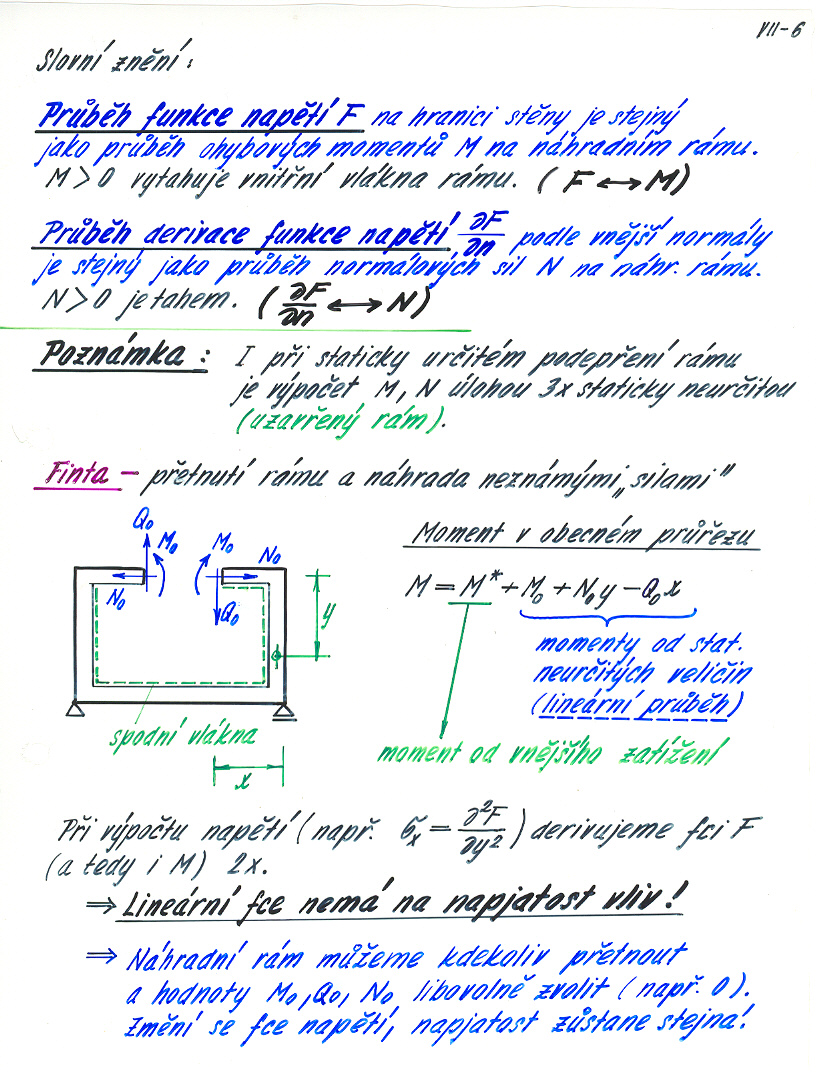 VII-6
Slovní znění:
Průběh funkce napětí F na hranici stěny je stejný
jako průběh ohybových momentů M na náhradním rámu.
M > 0 vytahuje vnitřní vlákna rámu. (F ↔ M)
Průběh derivace funkce napětí ∂F/∂n podle vnější normály
je stejný jako průběh normálových sil N na náhr. rámu.
N > 0 je tahem. (∂F/∂n ↔ N)
Poznámka: I při staticky určitém podepření rámu
je výpočet M, N úlohou 3x staticky neurčitou
(uzavřený rám).
Finta – přetnutí rámu a náhrada neznámými „silami"
Q₀ M₀ M₀ N₀
N₀ Q₀ y
spodní vlákna
x
Moment v obecném průřezu
M = M* + M₀ + N₀y – Q₀x
momenty od stat.
neurčitých veličin
(lineární průběh)
moment od vnějšího zatížení
Při výpočtu napětí (např. σₓ = ∂²F/∂y²) derivujeme fci F
(a tedy i M) 2x.
⇒ Lineární fce nemá na napjatost vliv!
⇒ Náhradní rám můžeme kdekoliv přetnout
a hodnoty M₀, Q₀, N₀ libovolně zvolit (např. 0).
Změní se fce napětí, napjatost zůstane stejná!